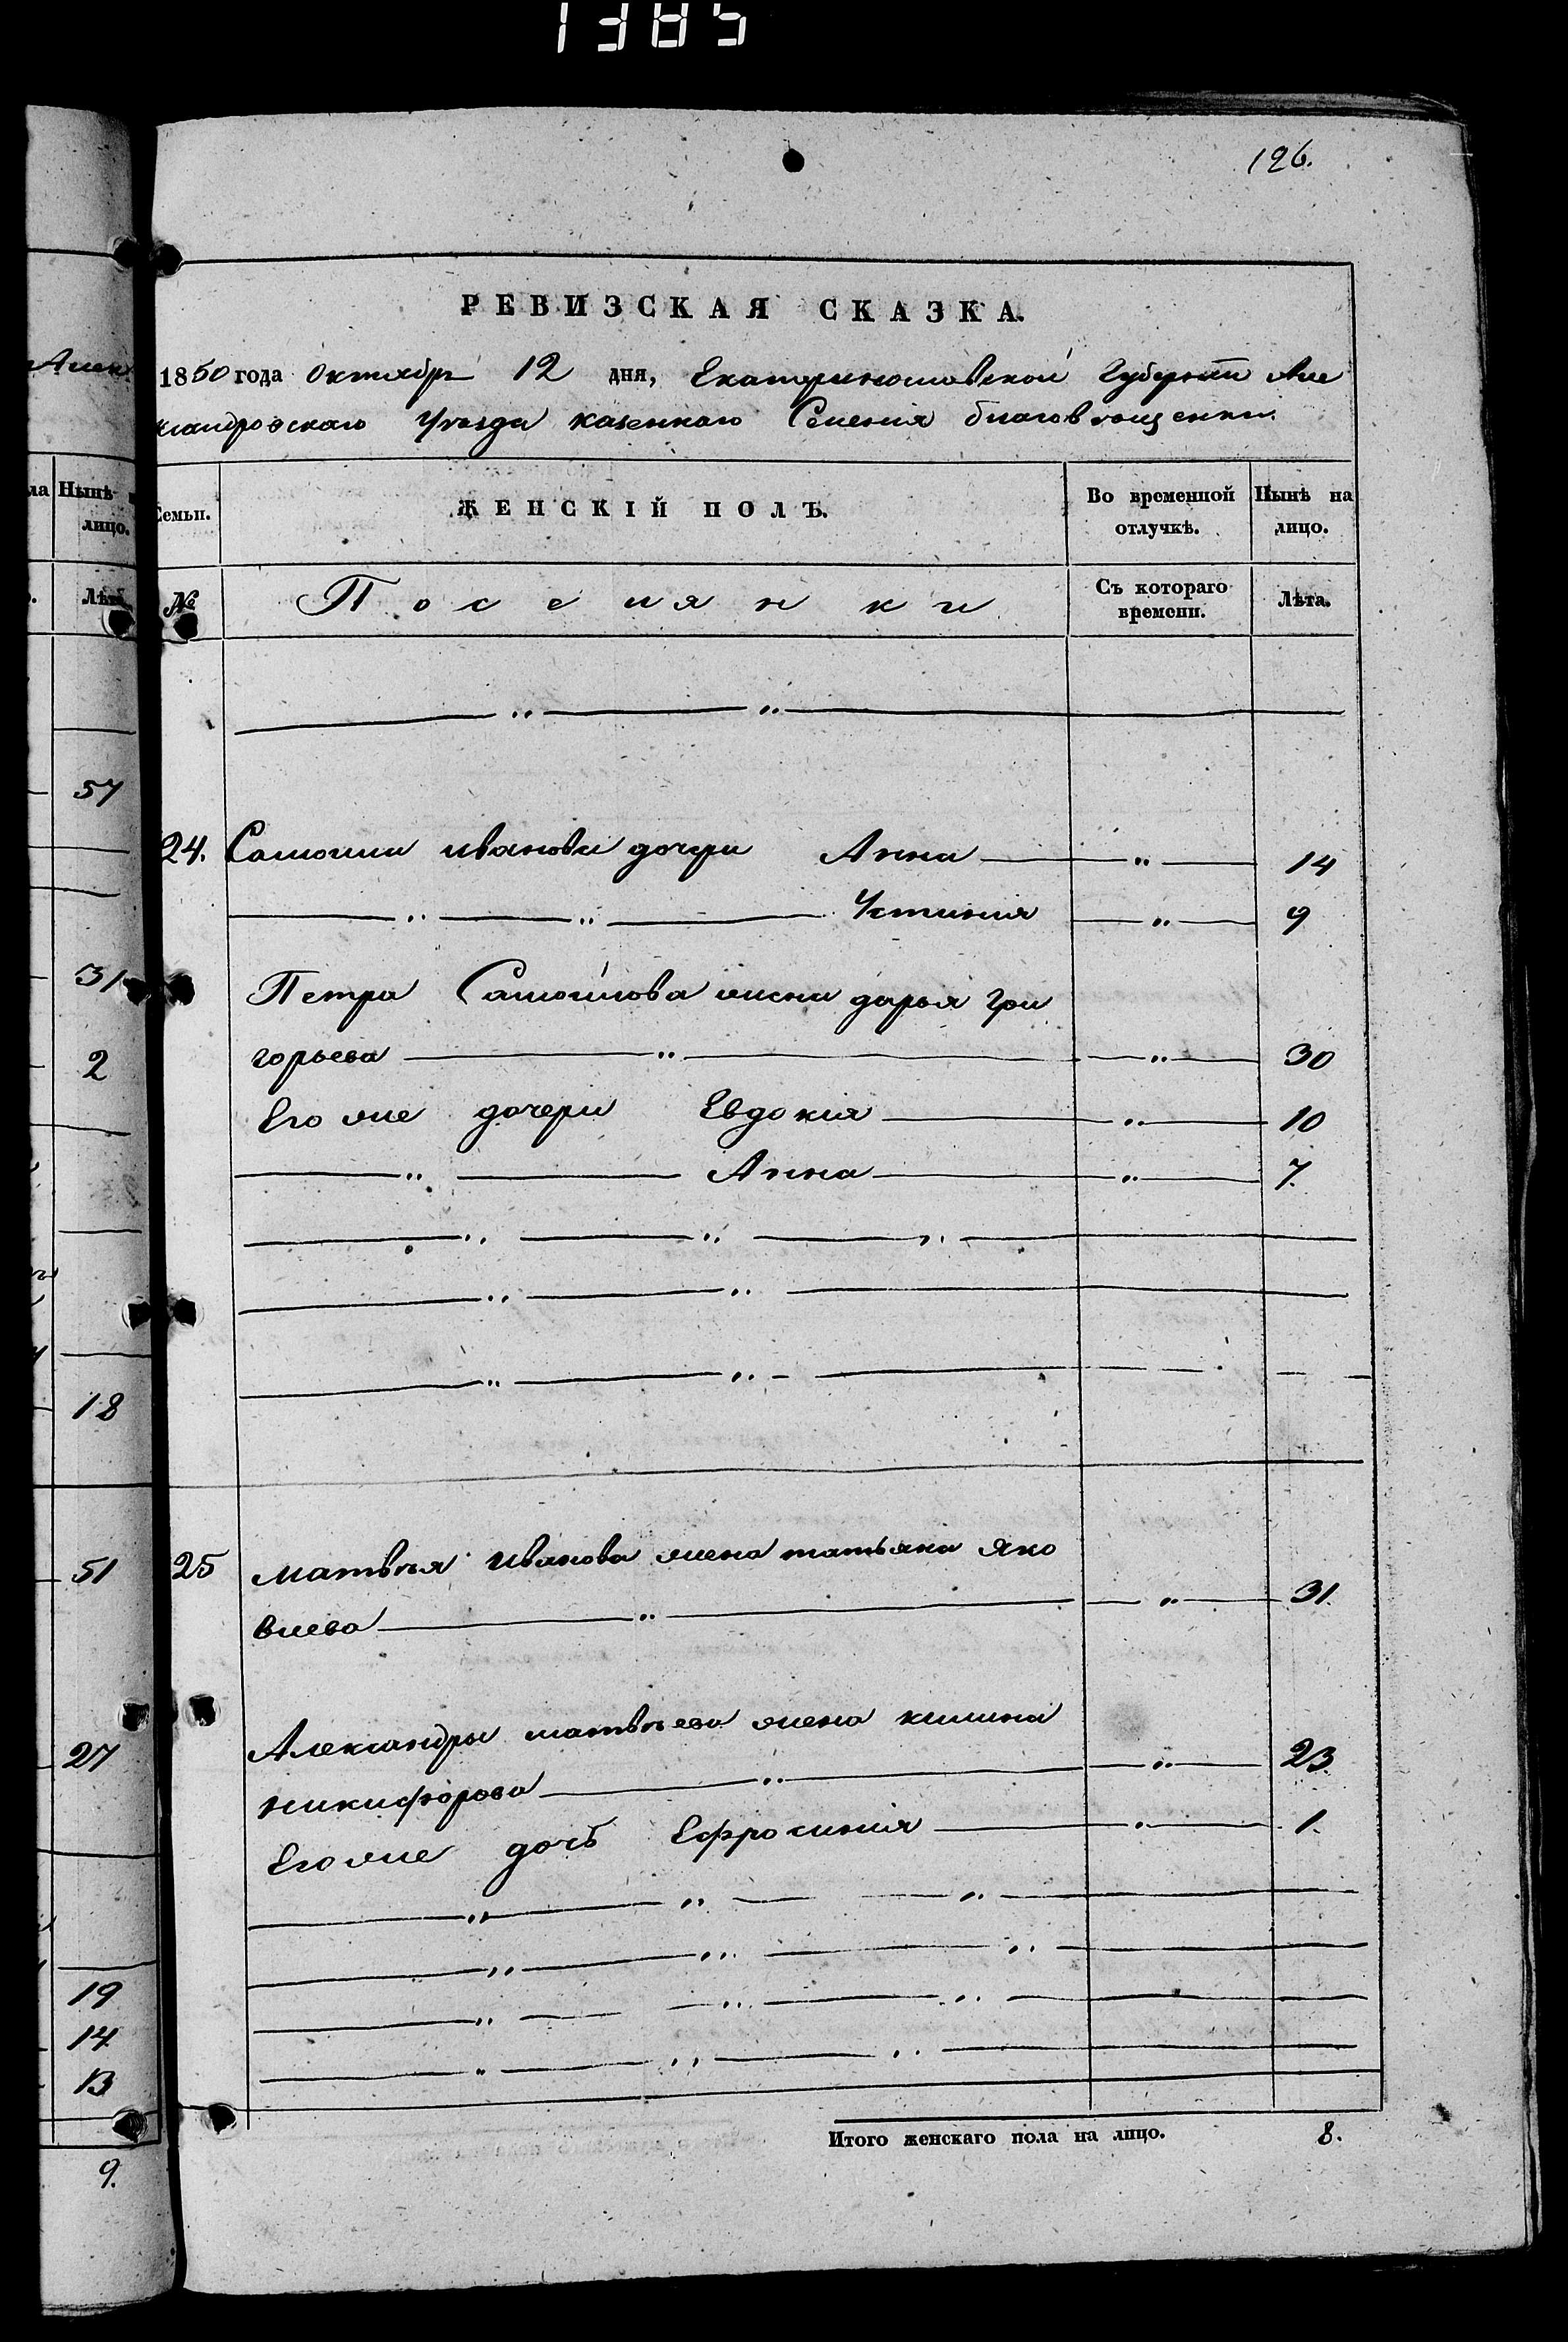 1385
126.
РЕВИЗСКАЯ СКАЗКА.
1850 года Октября 12 дня, Екатеринославской Губерніи Але
ксандровскаго Уѣзда казеннаго Селенія благовѣщенки
Семьи. ЖЕНСКІЙ ПОЛЪ. Во временной отлучкѣ. Нынѣ на лицо.
№ Поселянки Съ котораго времени. Лѣта.
24. Самойли иванова дочери Анна 14
Устинія 9
Петра Самойлова жена дарья гри
горьева 30
Его же дочери Евдокія 10
Анна 7.
25 матвѣя Иванова жена татьяна яко
влева 31.
Александры матвѣева жена килина
никифорова 23.
Его же дочь Ефросинія 1.
Итого женскаго пола на лицо. 8.
Алек
ла Нынѣ
лицо.
Лѣта
57
31
2
18
51
27
19
14
13
9.